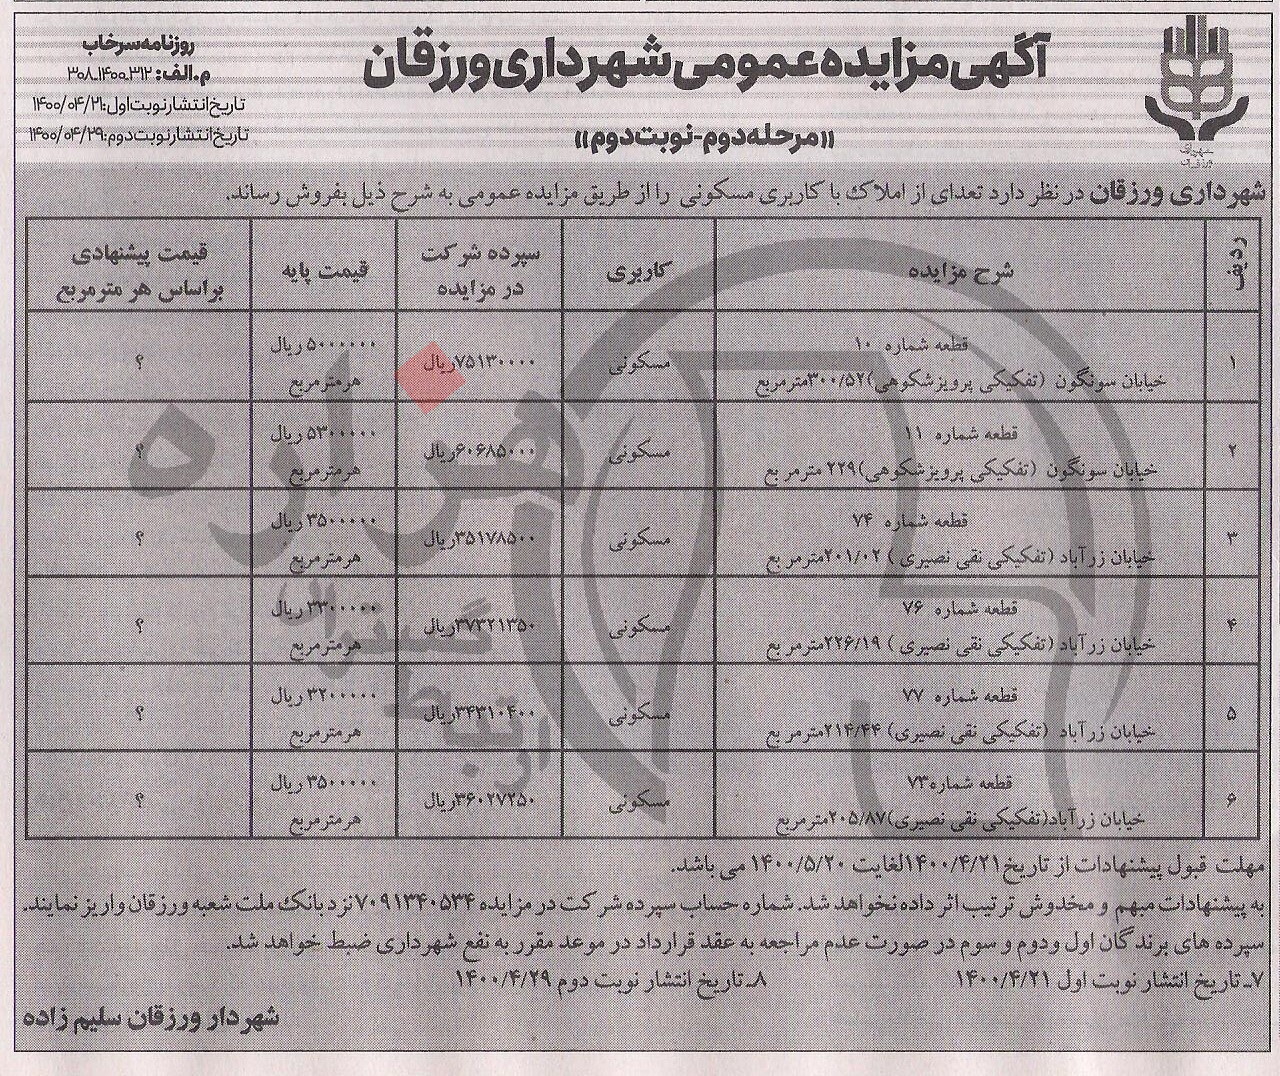 آگهی مزایده عمومی شهرداری ورزقان
«مرحله دوم-نوبت دوم»
روزنامه سرخاب
م.الف: ۳۰۸-۱۴۰۰۰۳۱۲
تاریخ انتشار نوبت اول:۱۴۰۰/۰۴/۲۱
تاریخ انتشار نوبت دوم:۱۴۰۰/۰۴/۲۹
شهرداری
ورزقان
شهرداری ورزقان در نظر دارد تعدای از املاک با کاربری مسکونی را از طریق مزایده عمومی به شرح ذیل بفروش رساند.
ردیف شرح مزایده کاربری سپرده شرکت در مزایده قیمت پایه قیمت پیشنهادی براساس هر مترمربع
۱ قطعه شماره ۱۰ مسکونی ۷۵۱۳۰۰۰۰ریال ۵۰۰۰۰۰۰ ریال هرمترمربع ؟
خیابان سونگون (تفکیکی پرویزشکوهی)۳۰۰/۵۲مترمربع
۲ قطعه شماره ۱۱ مسکونی ۶۰۶۸۵۰۰۰ریال ۵۳۰۰۰۰۰ ریال هرمترمربع ؟
خیابان سونگون (تفکیکی پرویزشکوهی)۲۲۹ مترمر بع
۳ قطعه شماره ۷۴ مسکونی ۳۵۱۷۸۵۰۰ریال ۳۵۰۰۰۰۰ ریال هرمترمربع ؟
خیابان زرآباد (تفکیکی نقی نصیری ) ۲۰۱/۰۲مترمر بع
۴ قطعه شماره ۷۶ مسکونی ۳۷۳۲۱۳۵۰ریال ۳۳۰۰۰۰۰ ریال هرمترمربع ؟
خیابان زرآباد (تفکیکی نقی نصیری ) ۲۲۶/۱۹مترمر بع
۵ قطعه شماره ۷۷ مسکونی ۳۴۳۱۰۴۰۰ریال ۳۲۰۰۰۰۰ ریال هرمترمربع ؟
خیابان زرآباد (تفکیکی نقی نصیری) ۲۱۴/۴۴مترمر بع
۶ قطعه شماره۷۳ مسکونی ۳۶۰۲۷۲۵۰ریال ۳۵۰۰۰۰۰ ریال هرمترمربع ؟
خیابان زرآباد(تفکیکی نقی نصیری)۲۰۵/۸۷مترمربع
هزاره
مهلت قبول پیشنهادات از تاریخ۱۴۰۰/۴/۲۱لغایت ۱۴۰۰/۵/۲۰ می باشد.
به پیشنهادات مبهم و مخدوش ترتیب اثر داده نخواهد شد. شماره حساب سپرده شرکت در مزایده ۷۰۹۱۳۴۰۵۳۴ نزد بانک ملت شعبه ورزقان واریز نمایند.
سپرده های برندگان اول ودوم و سوم در صورت عدم مراجعه به عقد قرارداد در موعد مقرر به نفع شهرداری ضبط خواهد شد.
۷ـ تاریخ انتشار نوبت اول ۱۴۰۰/۴/۲۱ ۸ـ تاریخ انتشار نوبت دوم ۱۴۰۰/۴/۲۹
شهردار ورزقان سلیم زاده